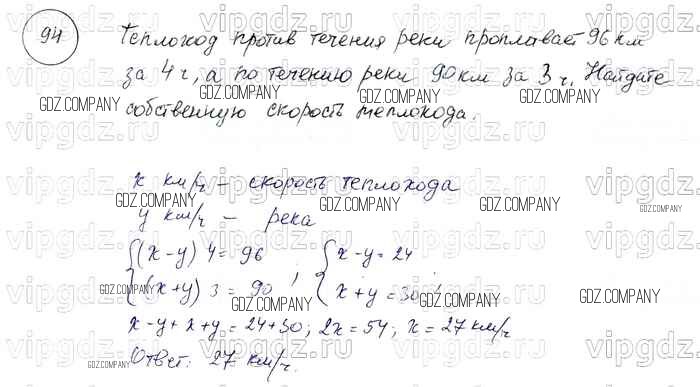 94
Теплоход против течения реки проплывает 96 км
за 4 ч, а по течению реки 90 км за 3 ч. Найдите
собственную скорость теплохода.
x км/ч – скорость теплохода
y км/ч – река
{(x-y) 4 = 96 ; {x-y = 24
{(x+y) 3 = 90 {x+y = 30 ;
x-y+x+y = 24+30; 2x = 54; x = 27 км/ч
Ответ: 27 км/ч.
vipgdz.ru
GDZ.COMPANY